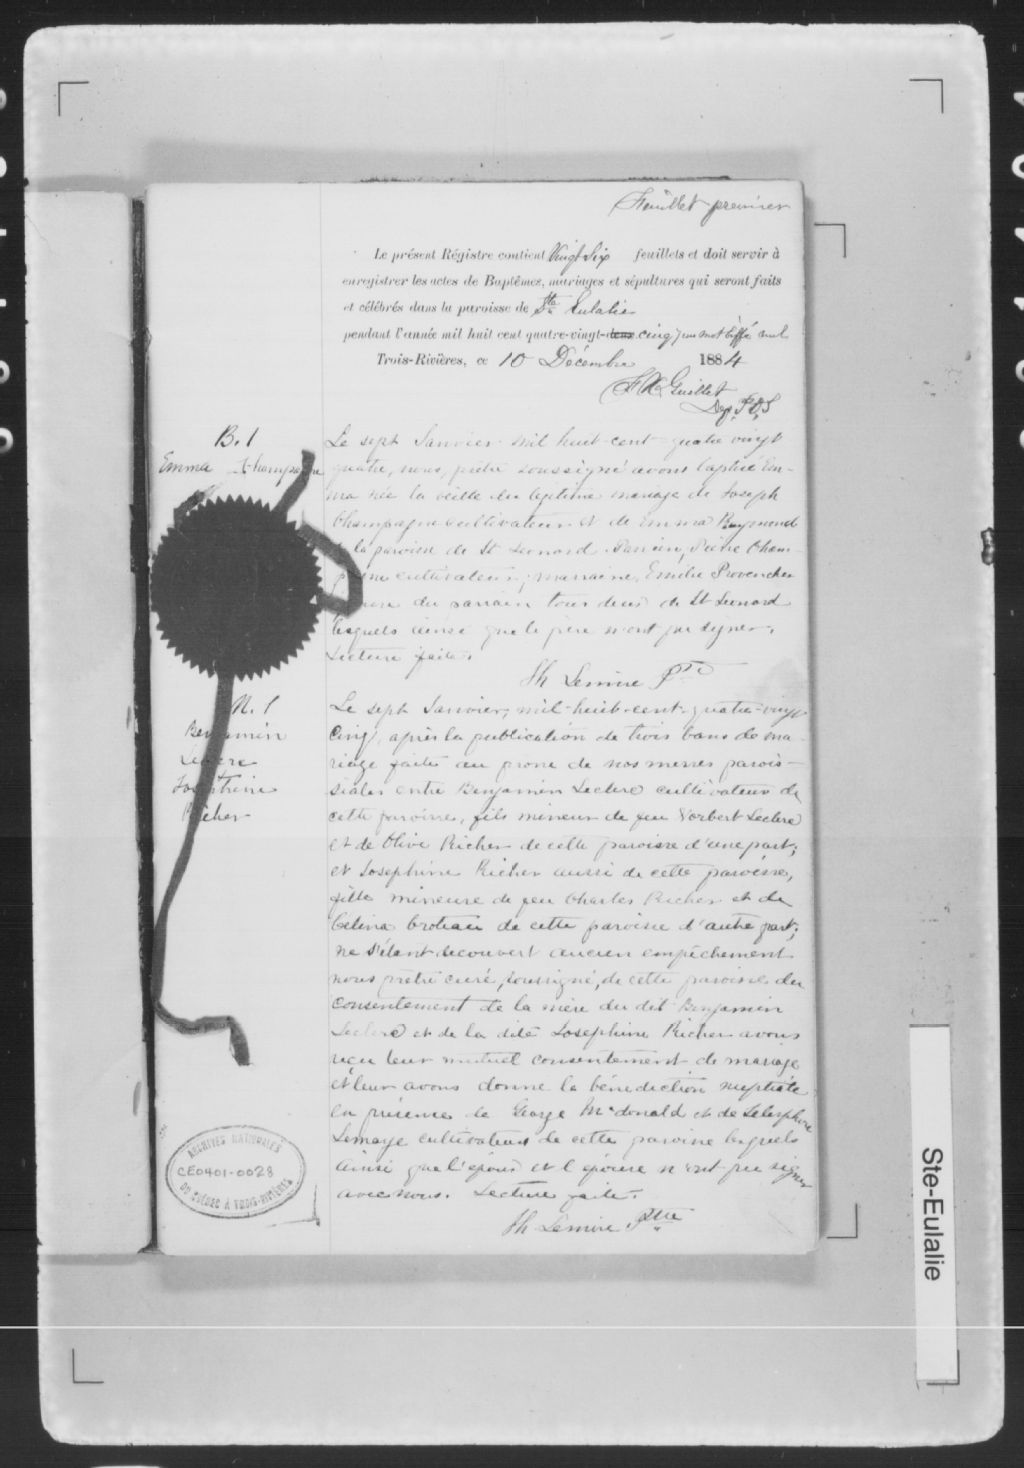 Feuillet premier
Le présent Régistre contient Vingt Six feuillets et doit servir à
enregistrer les actes de Baptêmes, mariages et sépultures qui seront faits
et célébrés dans la paroisse de Ste Eulalie
pendant l'année mil huit cent quatre-vingt-cinq, un mot biffé nul
Trois-Rivières, ce 10 Décembre 1884
F X Guillet
Dep. P.C.S
B. 1
Emma Champagne
Le sept Janvier mil huit-cent quatre vingt
quatre, nous, prêtre soussigné avons baptisé Em-
ma née la veille du légitime mariage de Joseph
Champagne cultivateur et de Emma Raymond
la paroisse de St Leonard. Parrain, Pierre Cham-
cultivateur; marraine, Emilie Provencher
du parrain tous deux de St Leonard
lesquels ainsi que le père n'ont pu signer.
Lecture faite.
Th Lemire Ptre
M. 1
Benjamin
Leclerc
Josephine
Richer
Le sept Janvier, mil-huit-cent-quatre-vingt
cinq, après la publication de trois bans de ma-
riage faite au prone de nos messes parois-
siales entre Benjamin Leclerc cultivateur de
cette paroisse, fils mineur de feu Norbert Leclerc
et de Olive Richer de cette paroisse d'une part;
et Josephine Richer aussi de cette paroisse,
fille mineure de feu Charles Richer et de
Célina Croteau de cette paroisse d'autre part;
ne s'étant decouvert aucun empêchement
nous prêtre curé, soussigné, de cette paroisse du
consentement de la mère du dit Benjamin
Leclerc et de la dite Josephine Richer avons
reçu leur mutuel consentement de mariage
et leur avons donné la bénédiction nuptiale
en présence de George McDonald et de Telesphore
Lemaye cultivateurs de cette paroisse lesquels
ainsi que l'époux et l'épouse n'ont pu signer
avec nous. Lecture faite.
Th Lemire Ptre
ARCHIVES NATIONALES
CE0401-0028
DU QUÉBEC À TROIS-RIVIÈRES
Ste-Eulalie